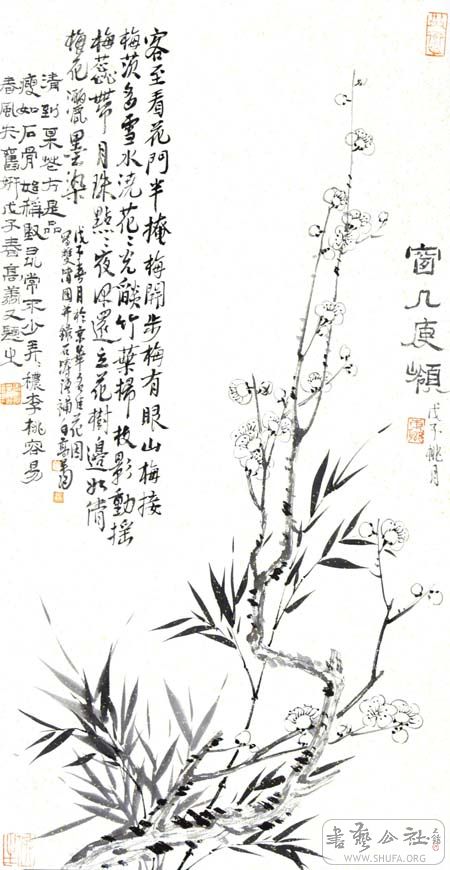 窗几庾嶺
戊子桃月
客至看花門半掩梅開步梅有眼山梅接
梅茨多雪水澆花〻光餤竹葉掃枝影動搖
梅蕊帶月珠點〻夜深還立花樹邊如倩
梅花灑墨染
戊子春月於京華
清到果然方是品
瘦如石骨始稱 常不少弄穠李桃容易
春風失舊妍戊子春高義又題之
書藝公社
WWW.SHUFA.ORG